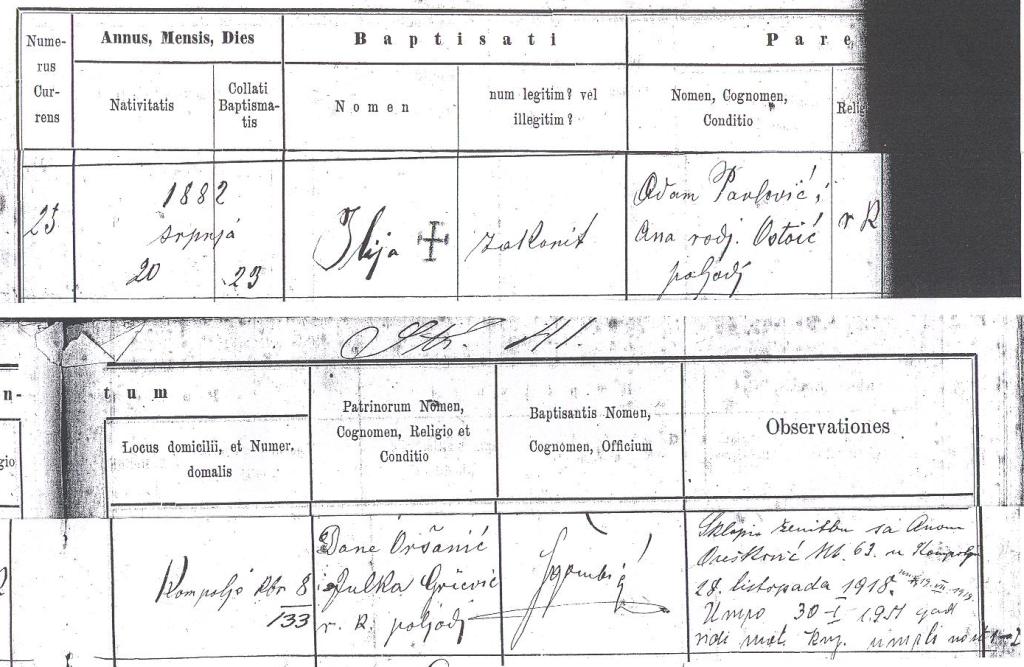 Nume-
rus
Cur-
rens
Annus, Mensis, Dies
Nativitatis
Collati
Baptisma-
tis
Baptisati
Nomen
num legitim? vel
illegitim?
Pare
Nomen, Cognomen,
Conditio
Relig
1882
srpnja
20
23
Ilija
zakonit
Adam Pavlović i
Ana rodj. Ostoić
poljodj
r K
Str. 41.
n-
tum
gio
Locus domicilii, et Numer.
domalis
Patrinorum Nomen,
Cognomen, Religio et
Conditio
Baptisantis Nomen,
Cognomen, Officium
Observationes
Kompolje kbr 8
133
Dane Oršanić
i Julka Grčević
r. k. poljodj
Sklopio ženitbu sa Anom
Orešković kb. 63. u Kompolju
28. listopada 1918.
Umro 30-I 1951 god
vidi mat. knj. umrli